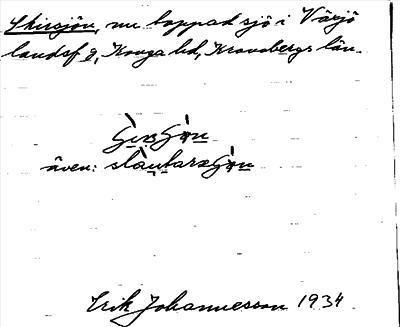 Skirsjön, nu tappad sjö i Växjö
landsf g, Konga hd, Kronobergs län.
även:
Erik Johannesson 1934